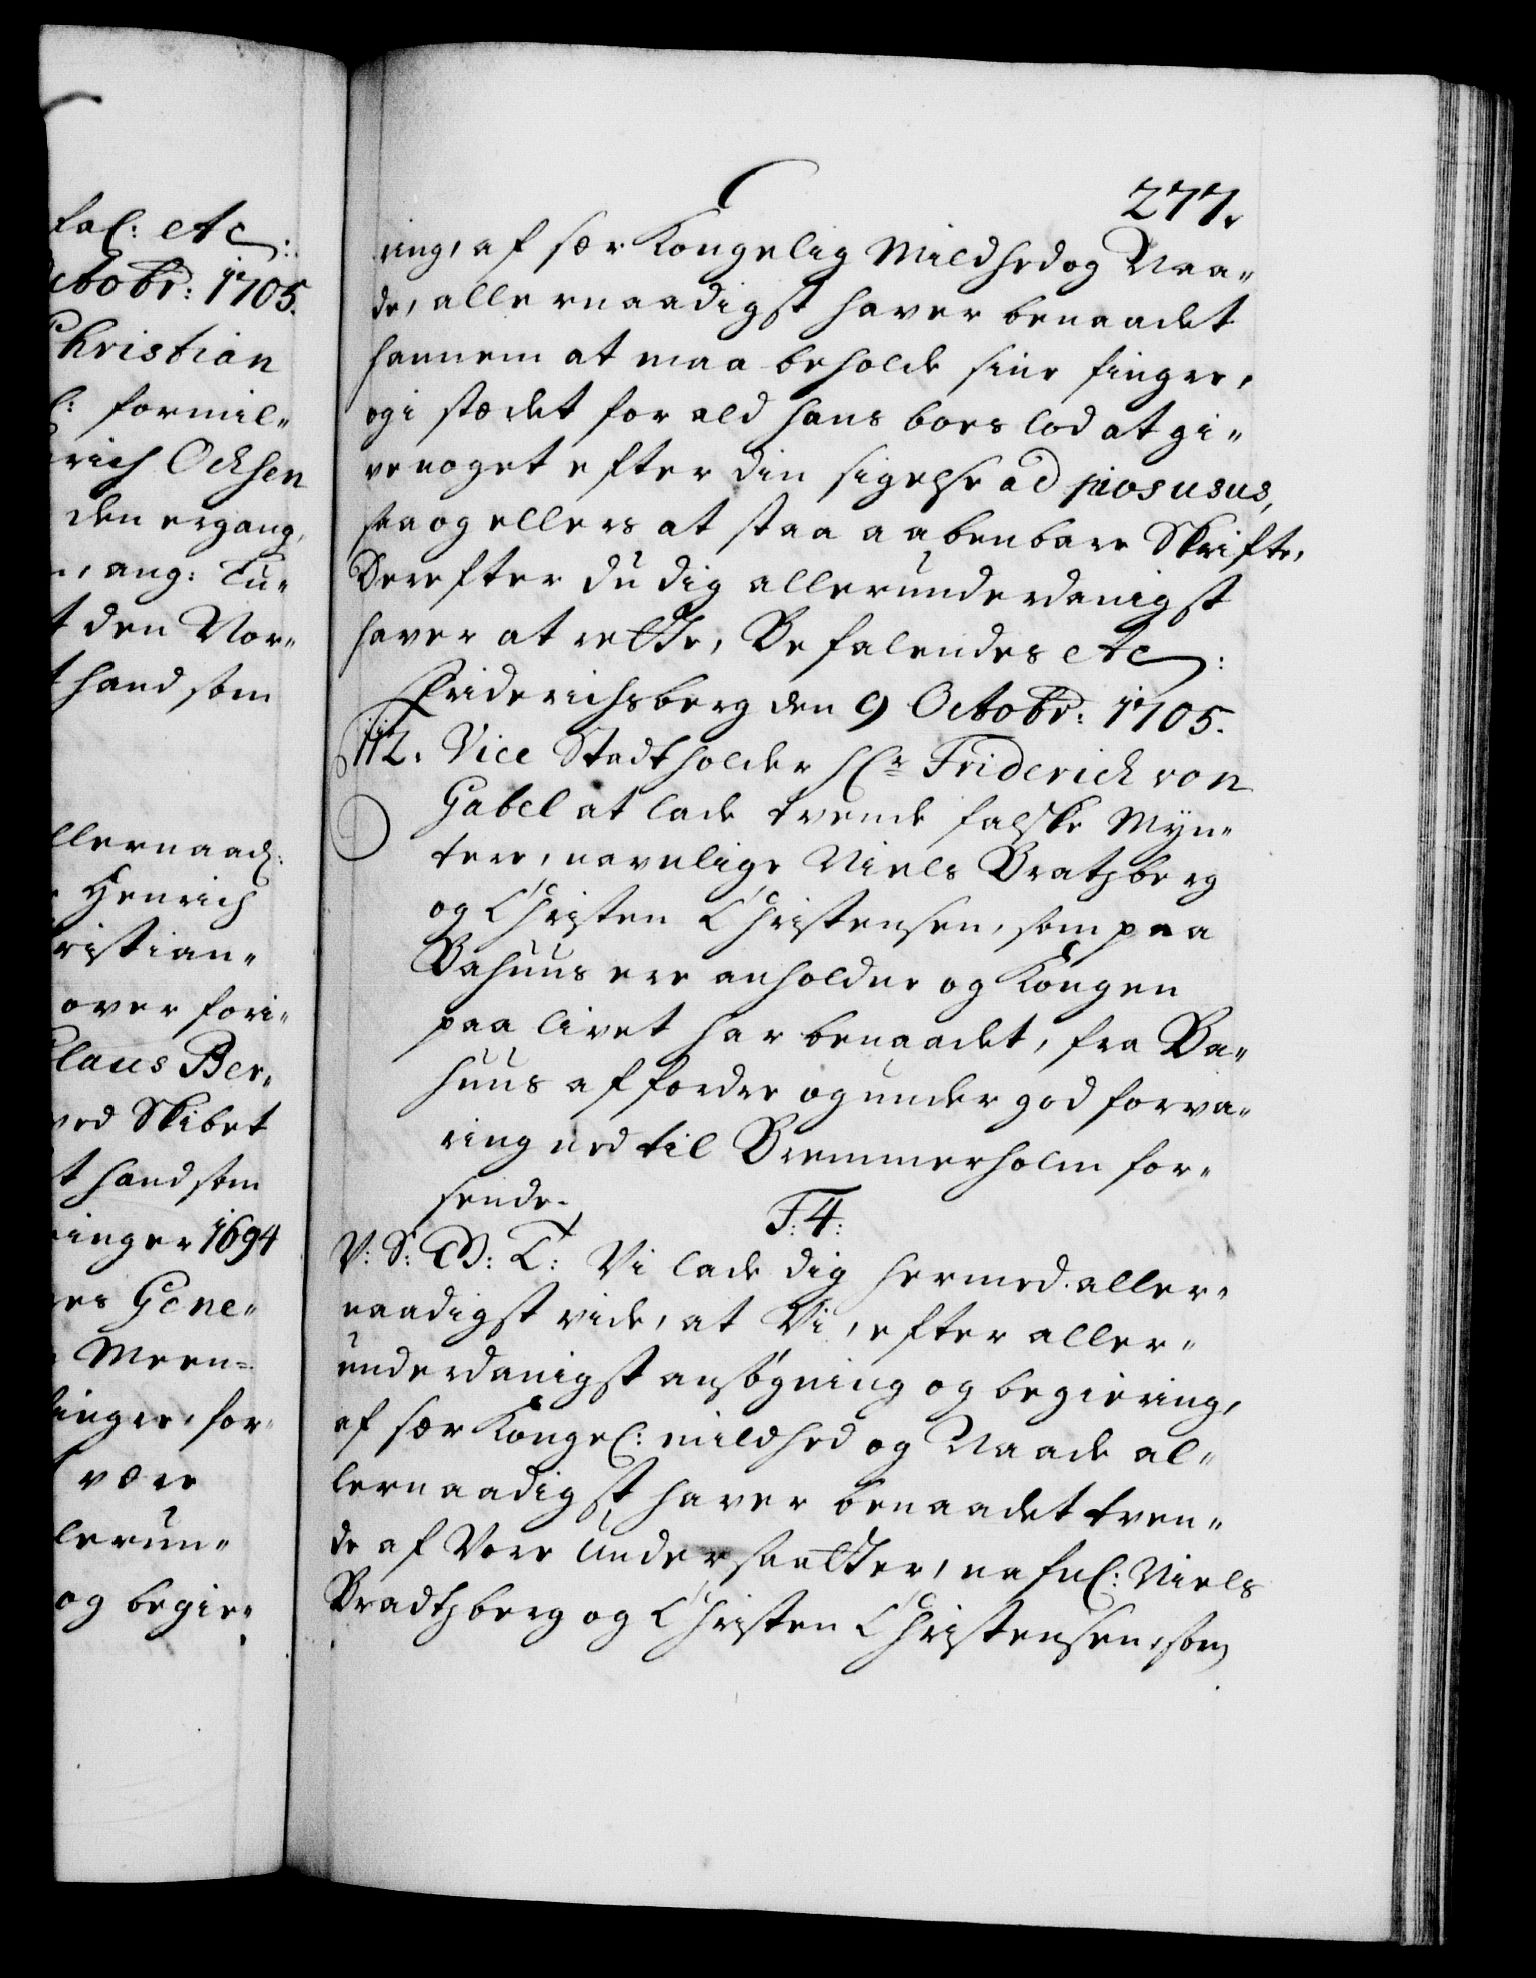 fal: etc:
ctobr: 1705.
Christian
l: formil-
rich Ochsen
den ergang,
ang: Tu-
t den Nor-
t hand som
llernaad:
Henrich
ristian-
over fori-
Claus Ber-
ved Skibet
t hand som
inger 1694
es Gene-
Meen-
finger, for-
være
lerun-
og begie-
277.
ring, af sær Kongelig Mildhed og Naa-
de, allernaadigst haver benaadet
hannem at maa beholde sine fingre,
og i stædet for ald hans boes lod at gi-
ve noget efter din sigelse ad pios usus,
saa og ellers at staa aabenbare Skrifte,
Derefter du dig allerunderdanigst
haver at rette, Befalendes etc:
Friderichsberg den 9 Octobr: 1705.
112. Vice Stadtholder Hr Friderich von
Gabel at lade tvende falske Myn-
tere, navnlige Niels Bratzberg
og Christen Christensen, som paa
Bahuus ere anholdne og Kongen
paa livet har benaadet, fra Ba-
huus affordre og under god forva-
ring ned til Bremmerholm for-
sende.
T: 4:
V: S: G: T: Vi lade dig hermed aller-
naadigst vide, at Vi, efter aller-
underdanigst ansøgning og begiering,
af sær Kongel: mildhed og Naade al-
lernaadigst haver benaadet tven-
de af Vore Undersaatter, nafnl: Niels
Bradtzberg og Christen Christensen, som